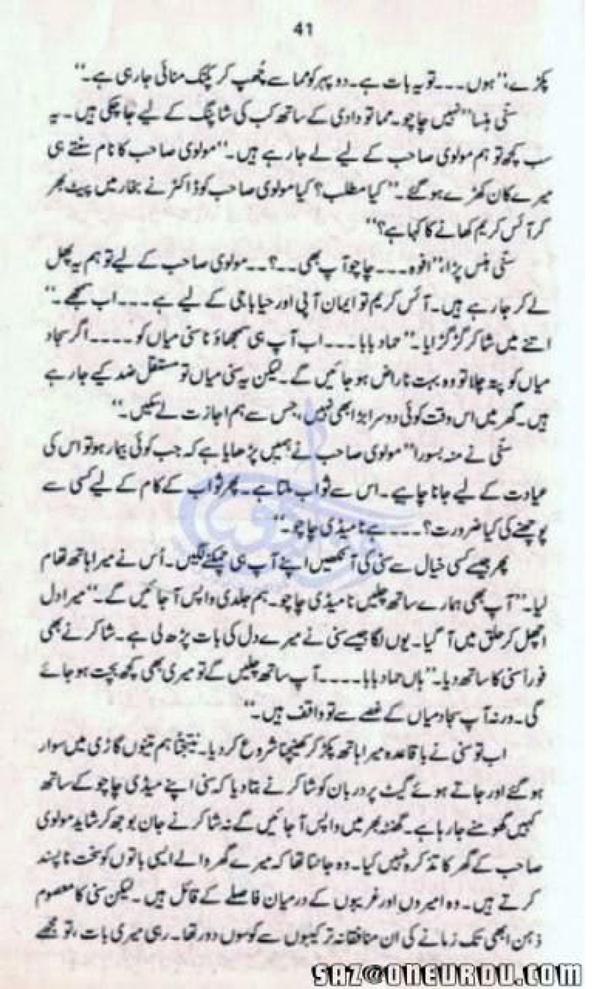 41
پکڑے،”ہوں۔۔۔تو یہ بات ہے۔دوپہر کو مما سے چُھپ کر پکنک منائی جارہی ہے۔“
سَنّی ہنسا”نہیں چاچو۔مما تو دادی کے ساتھ کب کی شاپنگ کے لیے جا چکی ہیں۔ یہ
سب کچھ تو ہم مولوی صاحب کے لیے لے جارہے ہیں۔“مولوی صاحب کا نام سنتے ہی
میرے کان کھڑے ہو گئے۔”کیا مطلب؟ کیا مولوی صاحب کو ڈاکٹر نے بخار میں پیٹ بھر
کر آئس کریم کھانے کا کہا ہے؟“
سَنّی ہنس پڑا،”افوہ۔۔۔چاچو آپ بھی۔۔؟۔۔مولوی صاحب کے لیے تو ہم یہ پھل
لے کر جارہے ہیں۔آئس کریم تو ایمان آپی اور حیا باجی کے لیے ہے۔۔۔اب سمجھے۔“
اتنے میں شاکر گڑگڑایا۔”حماد بابا۔۔۔اب آپ ہی سمجھاؤ نا سنی میاں کو۔۔۔۔اگر سجاد
میاں کو پتہ چلا تو وہ بہت ناراض ہو جائیں گے۔لیکن یہ سنی میاں تو مستقل ضد کیے جارہے
ہیں۔گھر میں اس وقت کوئی دوسرا بڑا بھی نہیں،جس سے ہم اجازت لے سکیں۔“
سَنّی نے منہ بسورا”مولوی صاحب نے ہمیں پڑھایا ہے کہ جب کوئی بیمار ہو تو اس کی
عیادت کے لیے جانا چاہیے۔اس سے ثواب ملتا ہے۔پھر ثواب کے کام کے لیے کسی سے
پوچھنے کی کیا ضرورت؟۔۔۔۔ہے نا میڈی چاچو۔“
پھر جیسے کسی خیال سے سنی کی آنکھیں اپنے آپ ہی چمکنے لگیں۔اُس نے میرا ہاتھ تھام
لیا۔”آپ بھی ہمارے ساتھ چلیں نا میڈی چاچو۔ہم جلدی واپس آجائیں گے۔“میرا دل
اچھل کر حلق میں آگیا۔یوں لگا جیسے سنی نے میرے دل کی بات پڑھ لی ہے۔شاکر نے بھی
فوراً سنی کا ساتھ دیا۔”ہاں حماد بابا۔۔۔۔آپ ساتھ چلیں گے تو میری بھی کچھ بچت ہو جائے
گی۔ورنہ آپ سجاد میاں کے غصے سے تو واقف ہیں۔“
اب تو سنی نے باقاعدہ میرا ہاتھ پکڑ کر کھینچنا شروع کردیا۔نتیجتاً ہم تینوں گاڑی میں سوار
ہو گئے اور جاتے ہوئے گیٹ پر دربان کو شاکر نے بتادیا کہ سنی اپنے میڈی چاچو کے ساتھ
کہیں گھومنے جارہا ہے۔گھنٹہ بھر میں واپس آجائیں گے نہ شاکر نے جان بوجھ کر شاید مولوی
صاحب کے گھر کا تذکرہ نہیں کیا۔وہ جانتا تھا کہ میرے گھر والے ایسی باتوں کو سخت ناپسند
کرتے ہیں۔وہ امیروں اور غریبوں کے درمیان فاصلے کے قائل ہیں۔لیکن سنی کا معصوم
ذہن ابھی تک زمانے کی ان منافقانہ ترکیبوں سے کوسوں دور تھا۔رہی میری بات،تو مجھے
SAZ@ONEURDU.COM